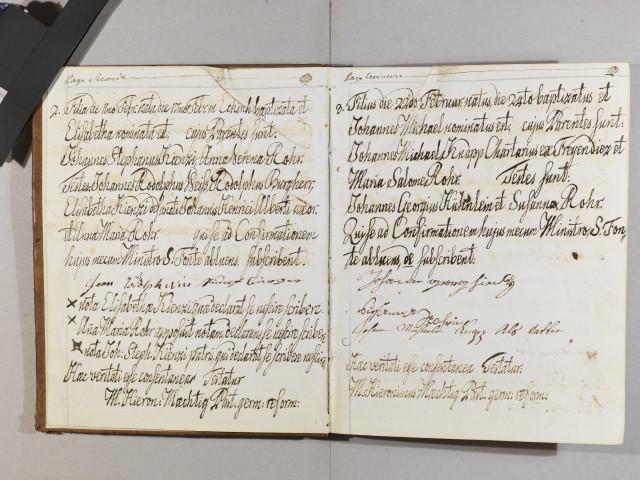 Page Seconde
2. Filia die Febr. nata, die Febr. baptizata et
Elisabetha nominata est; cujus Parentes sunt:
Johannes Stephanus Kienzi, Anna Verena Rohr.
Testes Johannes Rodolphus Rodolphus Burgherr,
Elisabetha Kienzi Johannis Henrici Alberti uxor.
et Anna Maria Rohr. qui se ad Confirmationem
hujus mecum Ministro S. Fonte abluens subscribent.
Jean
× nota Elisabethæ Kienzi quæ declarat se nescire scribere
× Ana Maria Rohr apposuit notam declarans se nescire scribere
× nota Joh. Steph. Kienzi patris qui declarat se scribere nescire
Hæc veritati esse consentanea Testatur
M. Hieron: Mæchtig Past. germ: reform:
Page Troisieme
3. Filius die 22do Februar. natus, die 24to baptizatus et
Johannes Michael nominatus est; cujus Parentes sunt:
Johannes Michael Knapp Charlanus ex Freyendiez et
Maria Salome Rohr. Testes sunt:
Johannes Georgius et Susanna Rohr.
Qui se ad Confirmationem hujus mecum Ministro, S. Fon-
te abluens, subscribent:
Johann
Susanna
Johan Michael Knapp Als Vatter
Hæc veritati esse consentanea Testatur:
M. Hieronimus Mæchtig Past. germ: reform: